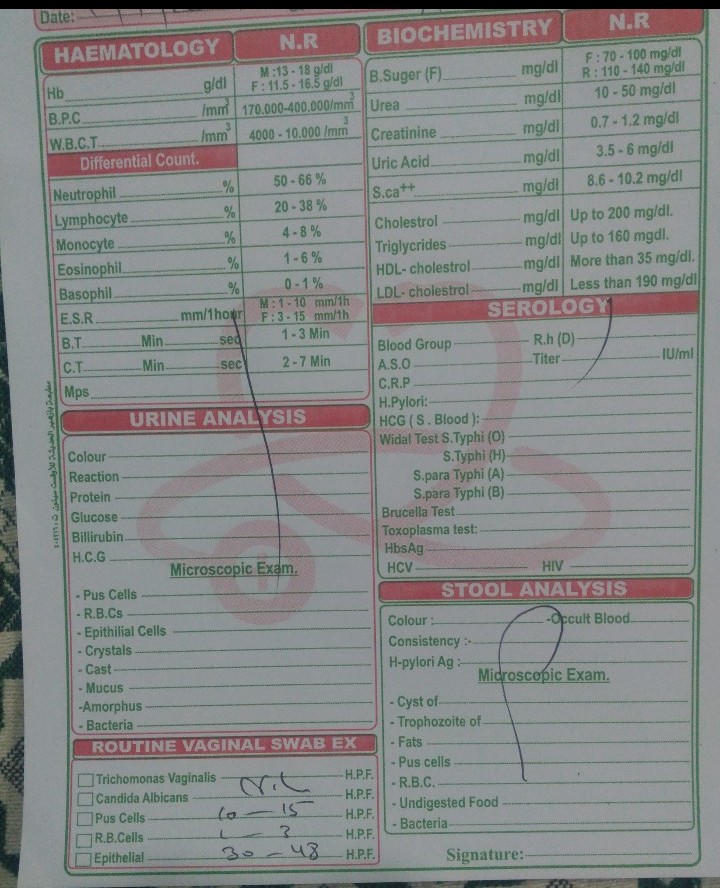 Date:
HAEMATOLOGY N.R
Hb g/dl M :13 - 18 g/dl
F : 11.5 - 16.5 g/dl
B.P.C /mm3 170.000-400.000/mm3
W.B.C.T /mm3 4000 - 10.000 /mm3
Differential Count.
Neutrophil % 50 - 66 %
Lymphocyte % 20 - 38 %
Monocyte % 4 - 8 %
Eosinophil % 1 - 6 %
Basophil % 0 - 1 %
E.S.R mm/1hour M : 1 - 10 mm/1h
F : 3 - 15 mm/1h
B.T Min sec 1 - 3 Min
C.T Min sec 2 - 7 Min
Mps
URINE ANALYSIS
Colour
Reaction
Protein
Glucose
Billirubin
H.C.G
Microscopic Exam.
- Pus Cells
- R.B.Cs
- Epithilial Cells
- Crystals
- Cast
- Mucus
-Amorphus
- Bacteria
ROUTINE VAGINAL SWAB EX
Trichomonas Vaginalis H.P.F.
Nil
Candida Albicans H.P.F.
Pus Cells 10 - 15 H.P.F.
R.B.Cells 1 - 3 H.P.F.
Epithelial 30 - 48 H.P.F.
BIOCHEMISTRY N.R
B.Suger (F) mg/dl F : 70 - 100 mg/dl
R : 110 - 140 mg/dl
Urea mg/dl 10 - 50 mg/dl
Creatinine mg/dl 0.7 - 1.2 mg/dl
Uric Acid mg/dl 3.5 - 6 mg/dl
S.ca++ mg/dl 8.6 - 10.2 mg/dl
Cholestrol mg/dl Up to 200 mg/dl.
Triglycrides mg/dl Up to 160 mgdl.
HDL- cholestrol mg/dl More than 35 mg/dl.
LDL- cholestrol mg/dl Less than 190 mg/dl
SEROLOGY
Blood Group R.h (D)
A.S.O Titer IU/ml
C.R.P
H.Pylori:
HCG ( S . Blood ):
Widal Test S.Typhi (O)
S.Typhi (H)
S.para Typhi (A)
S.para Typhi (B)
Brucella Test
Toxoplasma test:
HbsAg
HCV HIV
STOOL ANALYSIS
Colour : -Occult Blood
Consistency :-
H-pylori Ag :
Microscopic Exam.
- Cyst of
- Trophozoite of
- Fats
- Pus cells
- R.B.C.
- Undigested Food
- Bacteria
Signature: